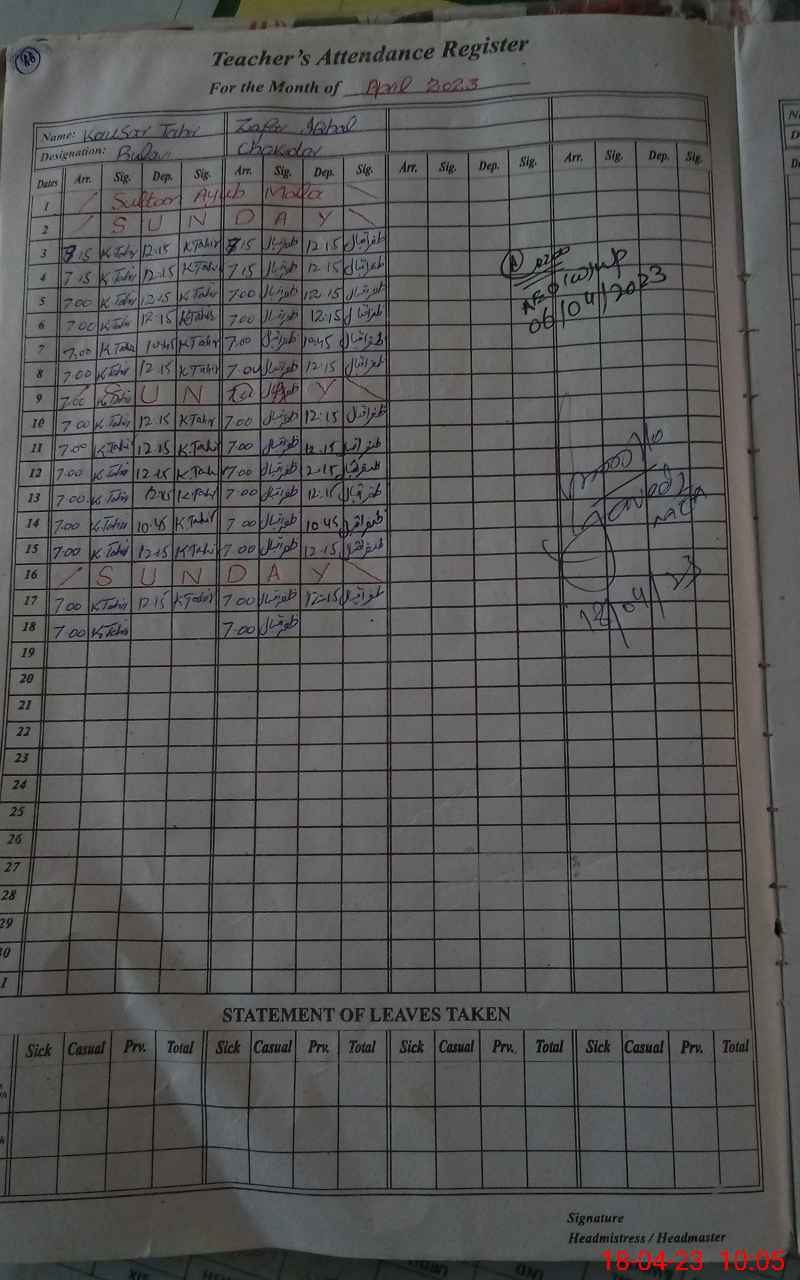 Teacher's Attendance Register
For the Month of April 2023
Name: Kousar Tahir Zafar Iqbal
Designation: Chokidar
Dates Arr. Sig. Dep. Sig. Arr. Sig. Dep. Sig. Arr. Sig. Dep. Sig. Arr. Sig. Dep. Sig.
1 Sultan Ayub Mela
2 S U N D A Y
3 7.15 K Tahir 12.15 K Tahir 7.15 ظفراقبال 12.15 ظفراقبال
4 7.15 K Tahir 12.15 K Tahir 7.15 ظفراقبال 12.15 ظفراقبال
5 7.00 K Tahir 12.15 K Tahir 7.00 ظفراقبال 12.15 ظفراقبال
6 7.00 K Tahir 12.15 K Tahir 7.00 ظفراقبال 12.15 ظفراقبال
7 7.00 K Tahir 10.45 K Tahir 7.00 ظفراقبال 10.45 ظفراقبال
8 7.00 K Tahir 12.15 K Tahir 7.00 ظفراقبال 12.15 ظفراقبال
9 7.00 K Tahir S U N D A Y
10 7.00 K Tahir 12.15 K Tahir 7.00 ظفراقبال 12.15 ظفراقبال
11 7.00 K Tahir 12.15 K Tahir 7.00 ظفراقبال 12.15 ظفراقبال
12 7.00 K Tahir 12.15 K Tahir 7.00 ظفراقبال 12.15 ظفراقبال
13 7.00 K Tahir 12.15 K Tahir 7.00 ظفراقبال 12.15 ظفراقبال
14 7.00 K Tahir 10.45 K Tahir 7.00 ظفراقبال 10.45 ظفراقبال
15 7.00 K Tahir 12.15 K Tahir 7.00 ظفراقبال 12.15 ظفراقبال
16 S U N D A Y
17 7.00 K Tahir 12.15 K Tahir 7.00 ظفراقبال 12.15 ظفراقبال
18 7.00 K Tahir 7.00 ظفراقبال
19
20
21
22
23
24
25
26
27
28
29
06/04/2023
18/04/23
STATEMENT OF LEAVES TAKEN
Sick Casual Prv. Total Sick Casual Prv. Total Sick Casual Prv. Total Sick Casual Prv. Total
Signature
Headmistress / Headmaster
18-04-23 10:05